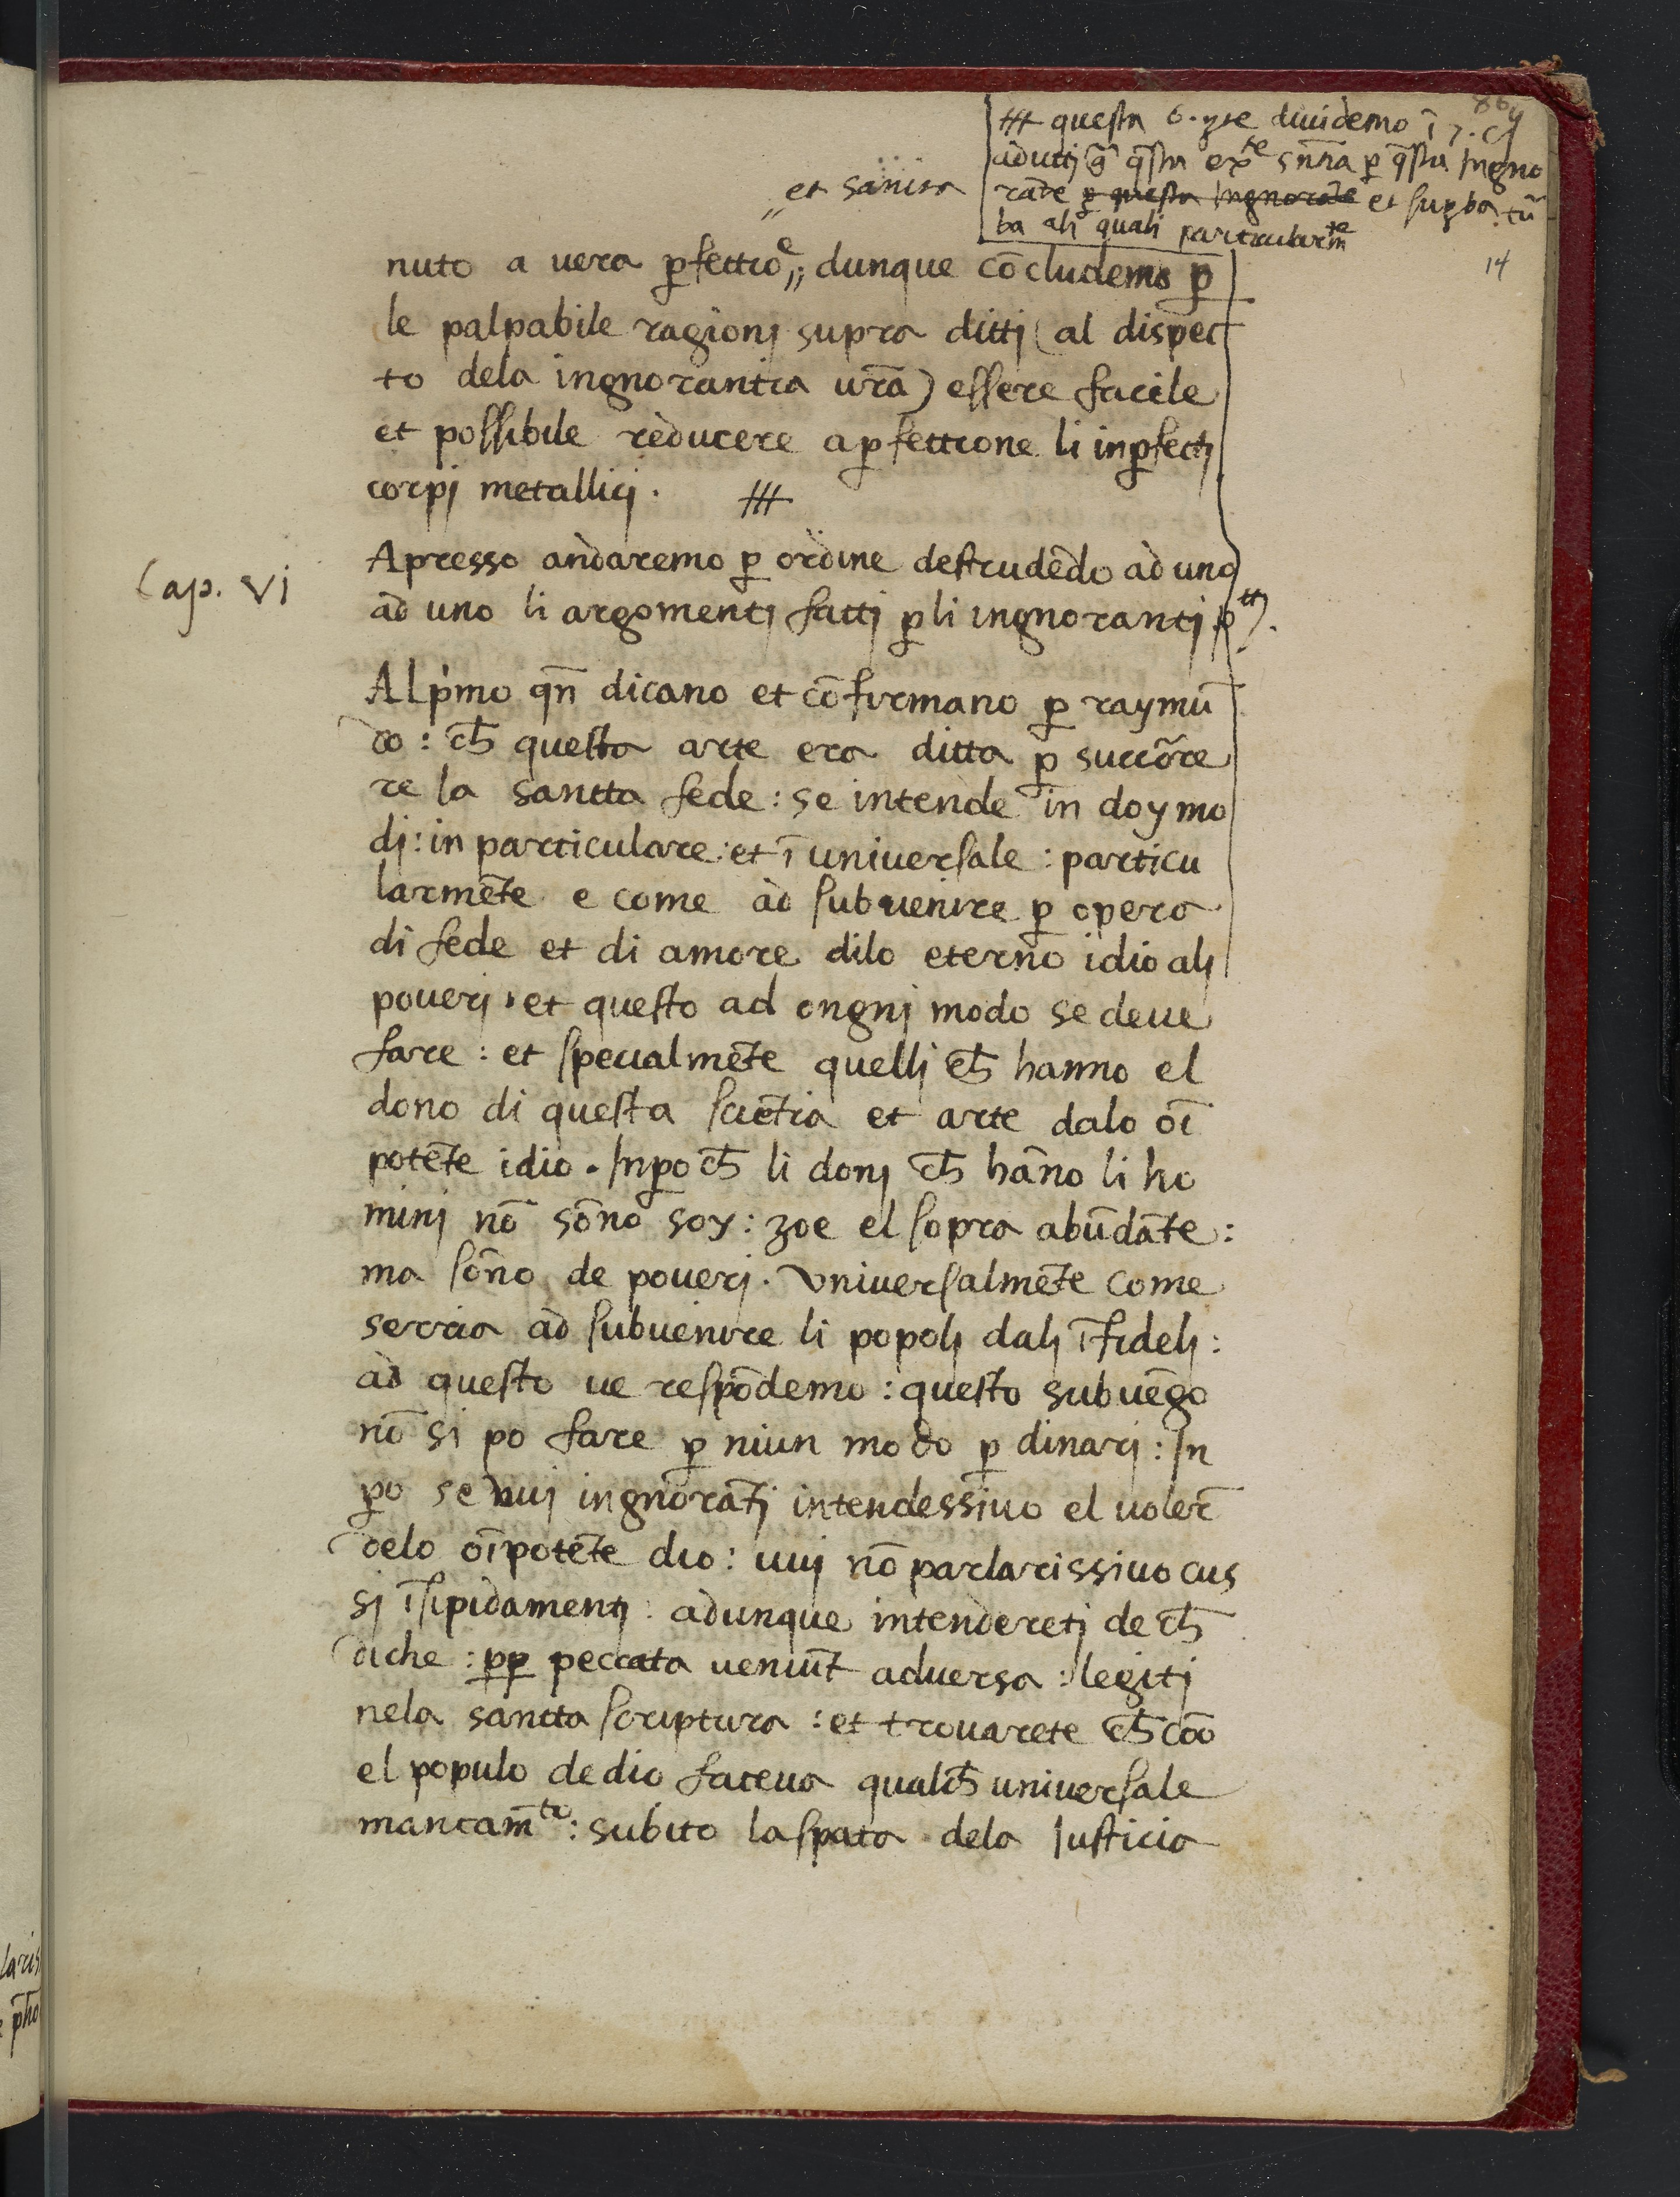 +++ questa 6. dividemo ī 7. c
adutti q̄sta sn̄na p̄ q̄sta Ingno
rāte p̄ questa Ingnorāte et
ba ali quali particularm̄te
14
„et sanita
nuto a vera ꝑfettiōe„; dunque cōcludemo ꝑ
le palpabile ragionj supra dittj (al dispec
to dela ingnorantia ur̄a) essere facile
et possibile reducere a ꝑfettione li inꝑfectj
corpj metallicj. +++
Cap. VI
Apresso andaremo ꝑ ordine destrudēdo ad uno
ad uno li argomentj fattj ꝑ li ingnorantj ꝓttj.
Al pͥmo qn̄ dicano et cōfirmano ꝑ raymū
do: ch̄ questa arte era ditta ꝑ succōre
re la santta fede: se intende in doy mo
dj: in particulare: et ī universale: particu
larmēte e come ad subvenire ꝑ opera
di fede et di amore dilo eterno idio alj
poverj. et questo ad ongnj modo se deve
fare: et specialmēte quellj ch̄ hanno el
dono di questa sciētia et arte dalo oī
potēte idio. Inꝑo ch̄ li donj ch̄ hāno li ho
minj nō sōno soy: zoe el sopra abūdāte:
ma sōno de poverj. Universalmēte come
serria ad subvenire li popolj dalj īfidelj:
ad questo ve respōdemo: questo subvēgo
nō si po fare ꝑ niun modo ꝑ dinarj: In
ꝑo se vuj ingnorātj intendessivo el voler̄
delo oīpotēte dio: vuj nō parlarissivo cus
sj īsipidamentj: adunque intenderetj de ch̄
diche: ꝓꝑ peccata veniūt adversa: legitj
nela santta scriptura: et trovarete ch̄ cōo
el populo de dio faceva qualch̄ universale
mancam̄to: subito la spata dela Justicia